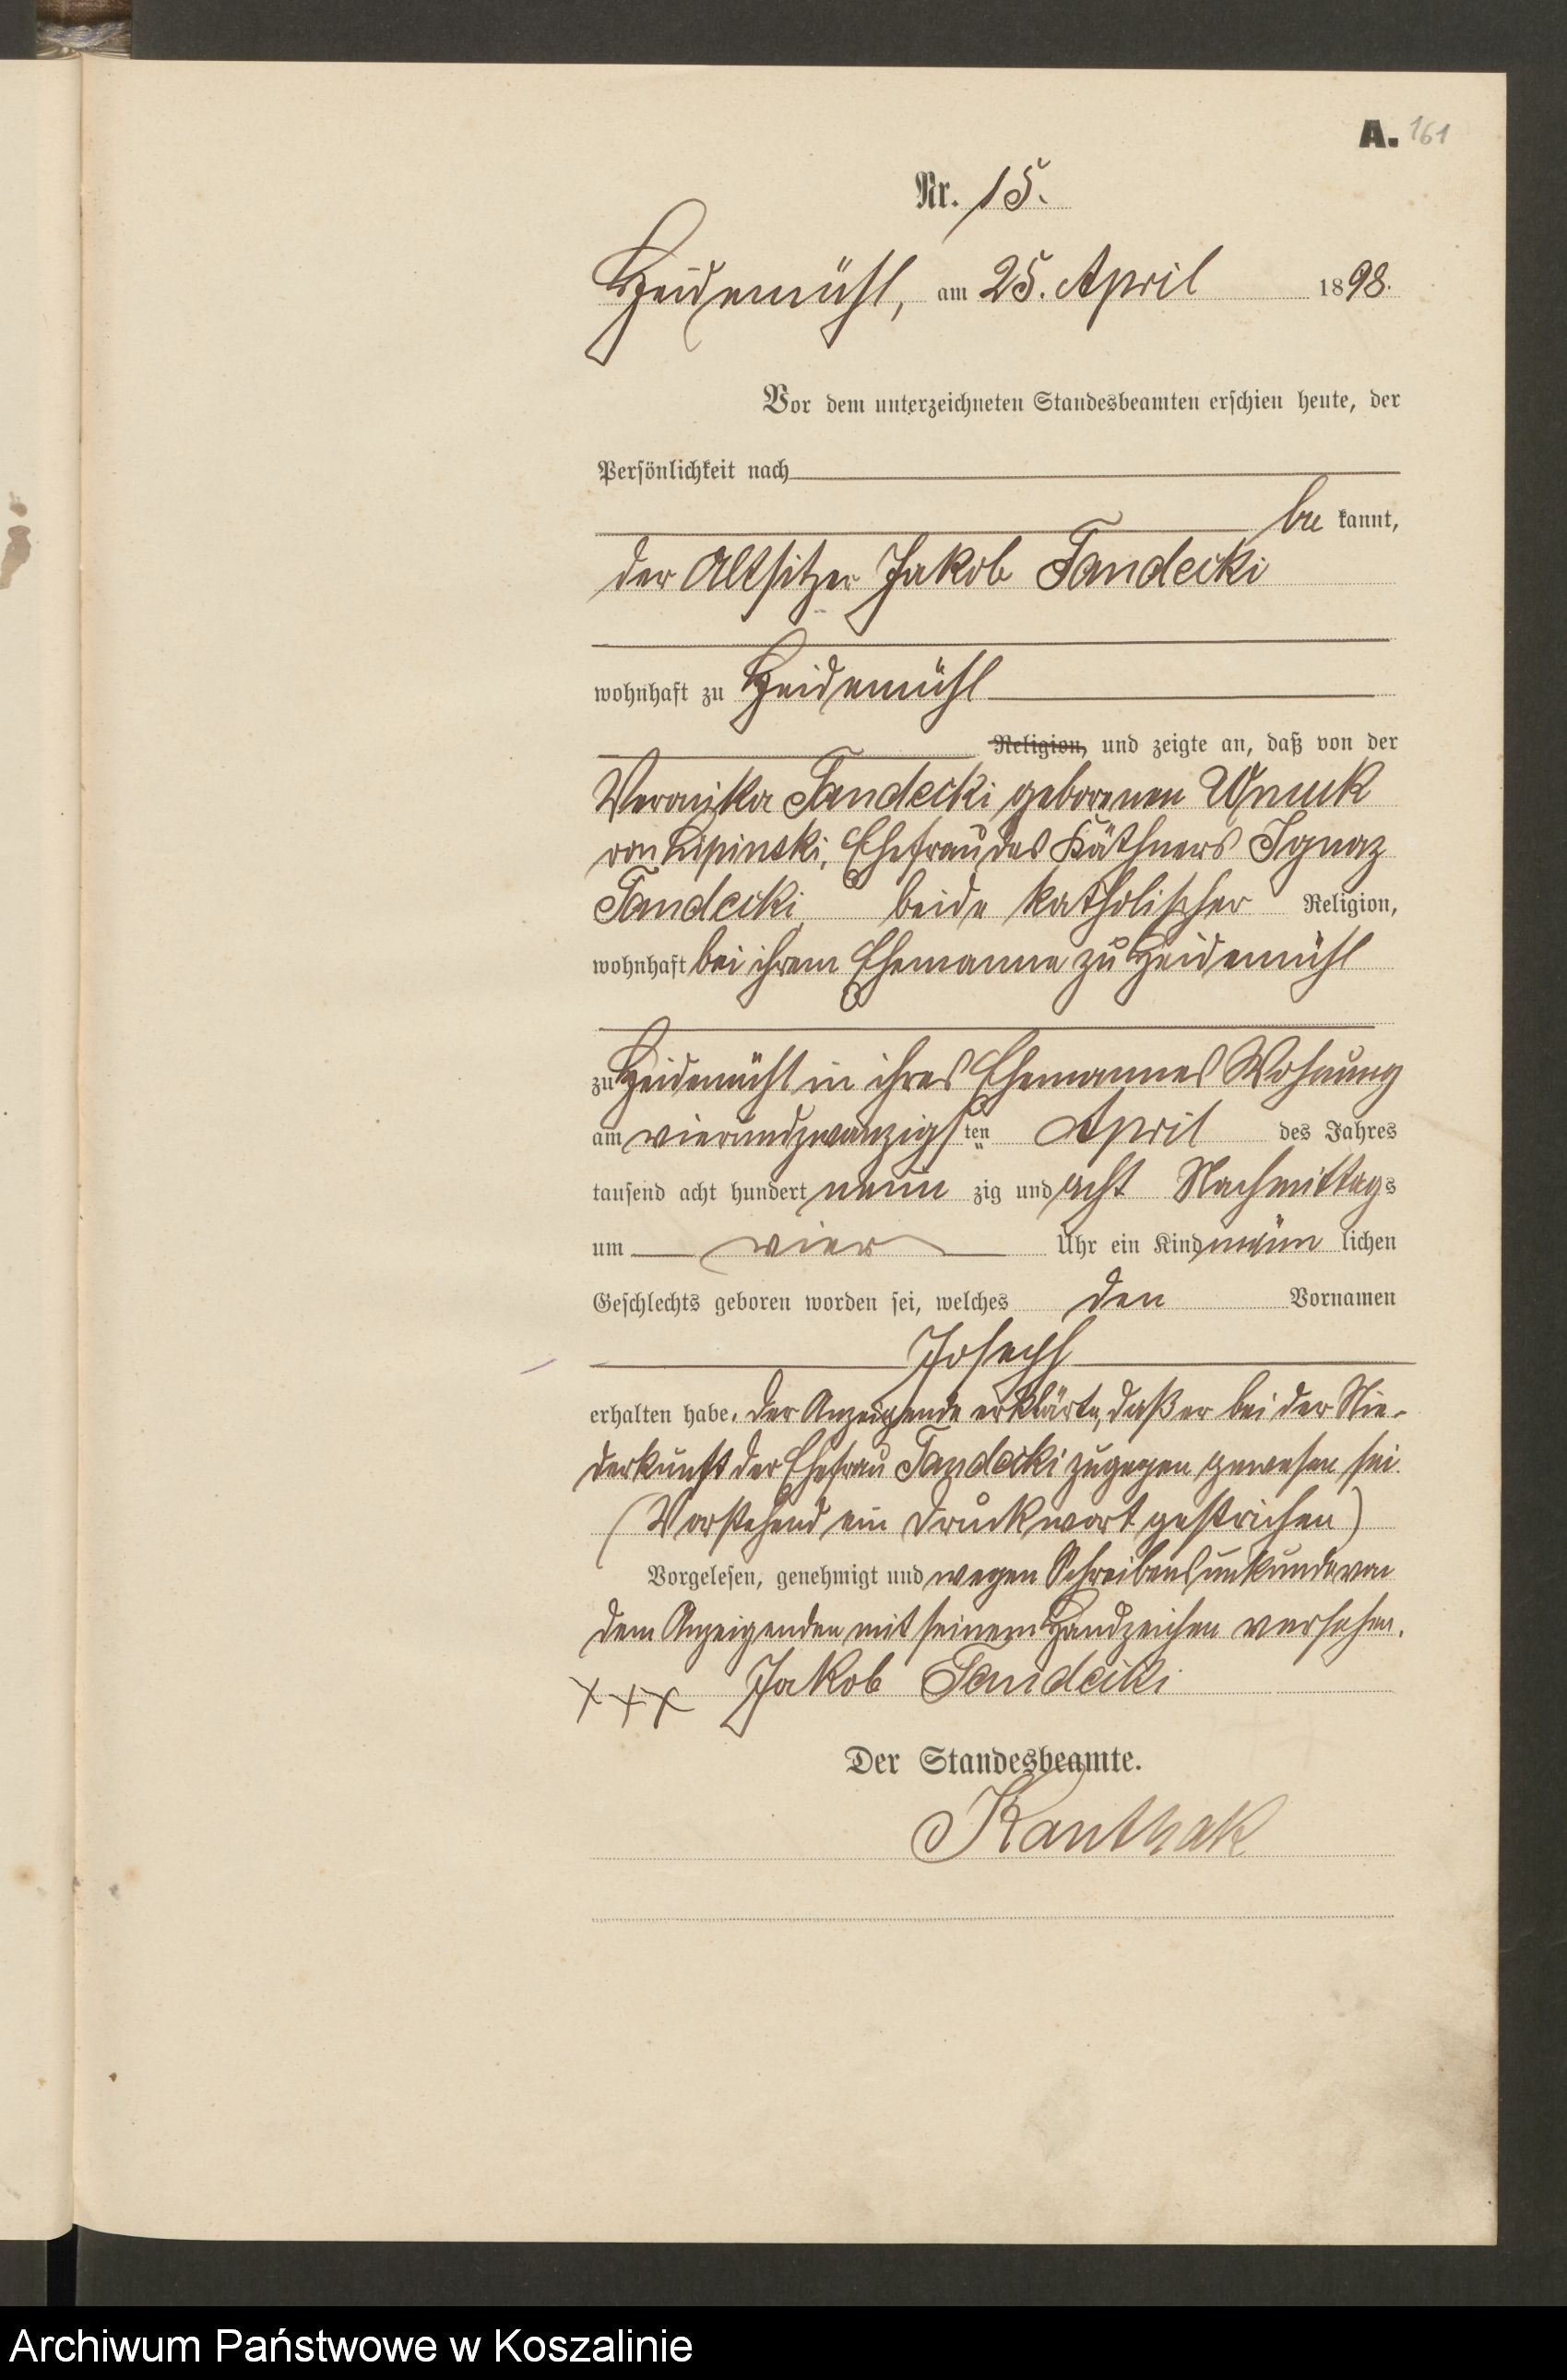 A. 161
Nr. 15.
Heidemühl, am 25. April 1898.
Vor dem unterzeichneten Standesbeamten erschien heute, der
Persönlichkeit nach
be kannt,
der Altsitzer Jakob Tandecki
wohnhaft zu Heidemühl
Religion, und zeigte an, daß von der
Veronika Tandecki geborenen Wnuk
von Lipinski, Ehefrau des Käthners Ignaz
Tandecki, beide katholischer Religion,
wohnhaft bei ihrem Ehemanne zu Heidemühl
zu Heidemühl in ihres Ehemannes Wohnung
am vierundzwanzigsten April des Jahres
tausend acht hundert neun zig und acht Nachmittags
um vier Uhr ein Kind männ lichen
Geschlechts geboren worden sei, welches den Vornamen
Joseph
erhalten habe. Der Anzeigende erklärte, daß er bei der Nie-
derkunft der Ehefrau Tandecki zugegen gewesen sei.
(Vorstehend ein Druckwort gestrichen)
Vorgelesen, genehmigt und wegen Schreibensunkunde von
dem Anzeigenden mit seinem Handzeichen versehen.
+++ Jakob Tandecki
Der Standesbeamte.
Kanthak
Archiwum Państwowe w Koszalinie